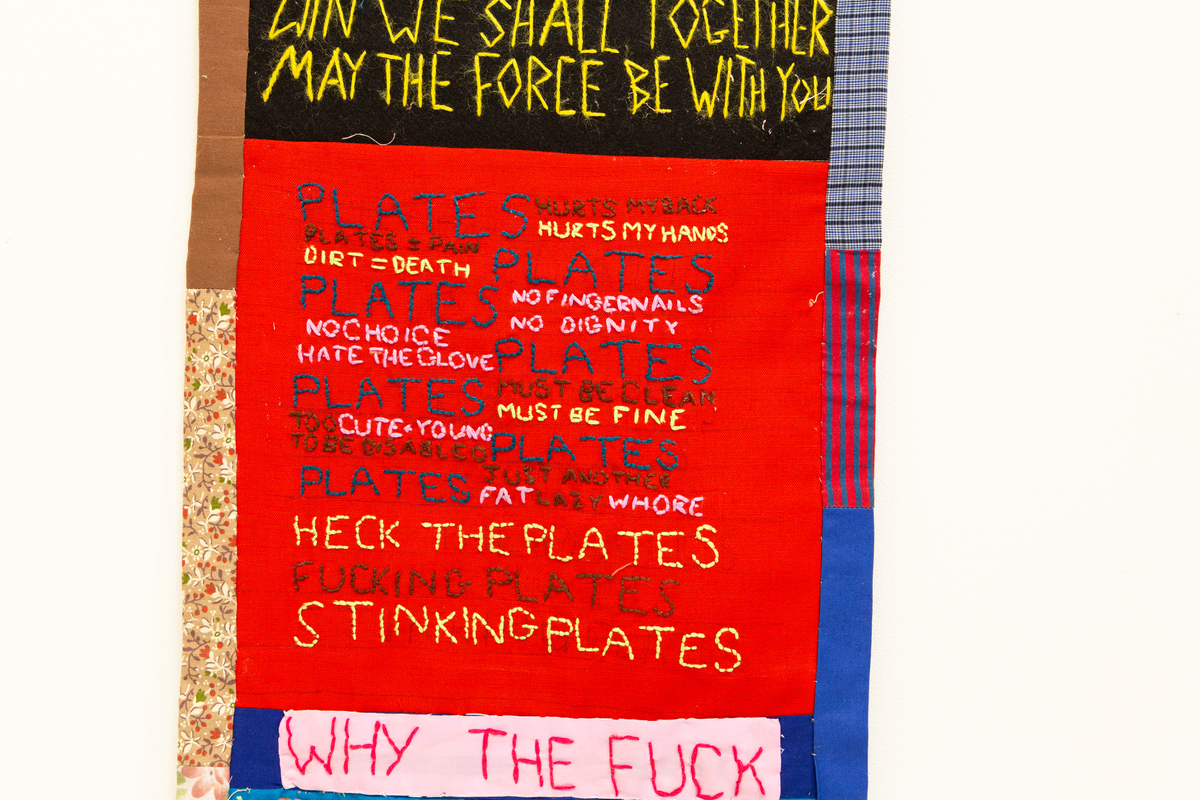 WIN WE SHALL TOGETHER
MAY THE FORCE BE WITH YOU
PLATES HURTS MY BACK
HURTS MY HANDS
PLATES = PAIN
DIRT = DEATH PLATES
PLATES NO FINGERNAILS
NO DIGNITY
NO CHOICE
HATE THE GLOVE PLATES
PLATES MUST BE CLEAN
MUST BE FINE
TOO CUTE + YOUNG
TO BE DISABLED PLATES
PLATES JUST ANOTHER
FAT LAZY WHORE
HECK THE PLATES
FUCKING PLATES
STINKING PLATES
WHY THE FUCK